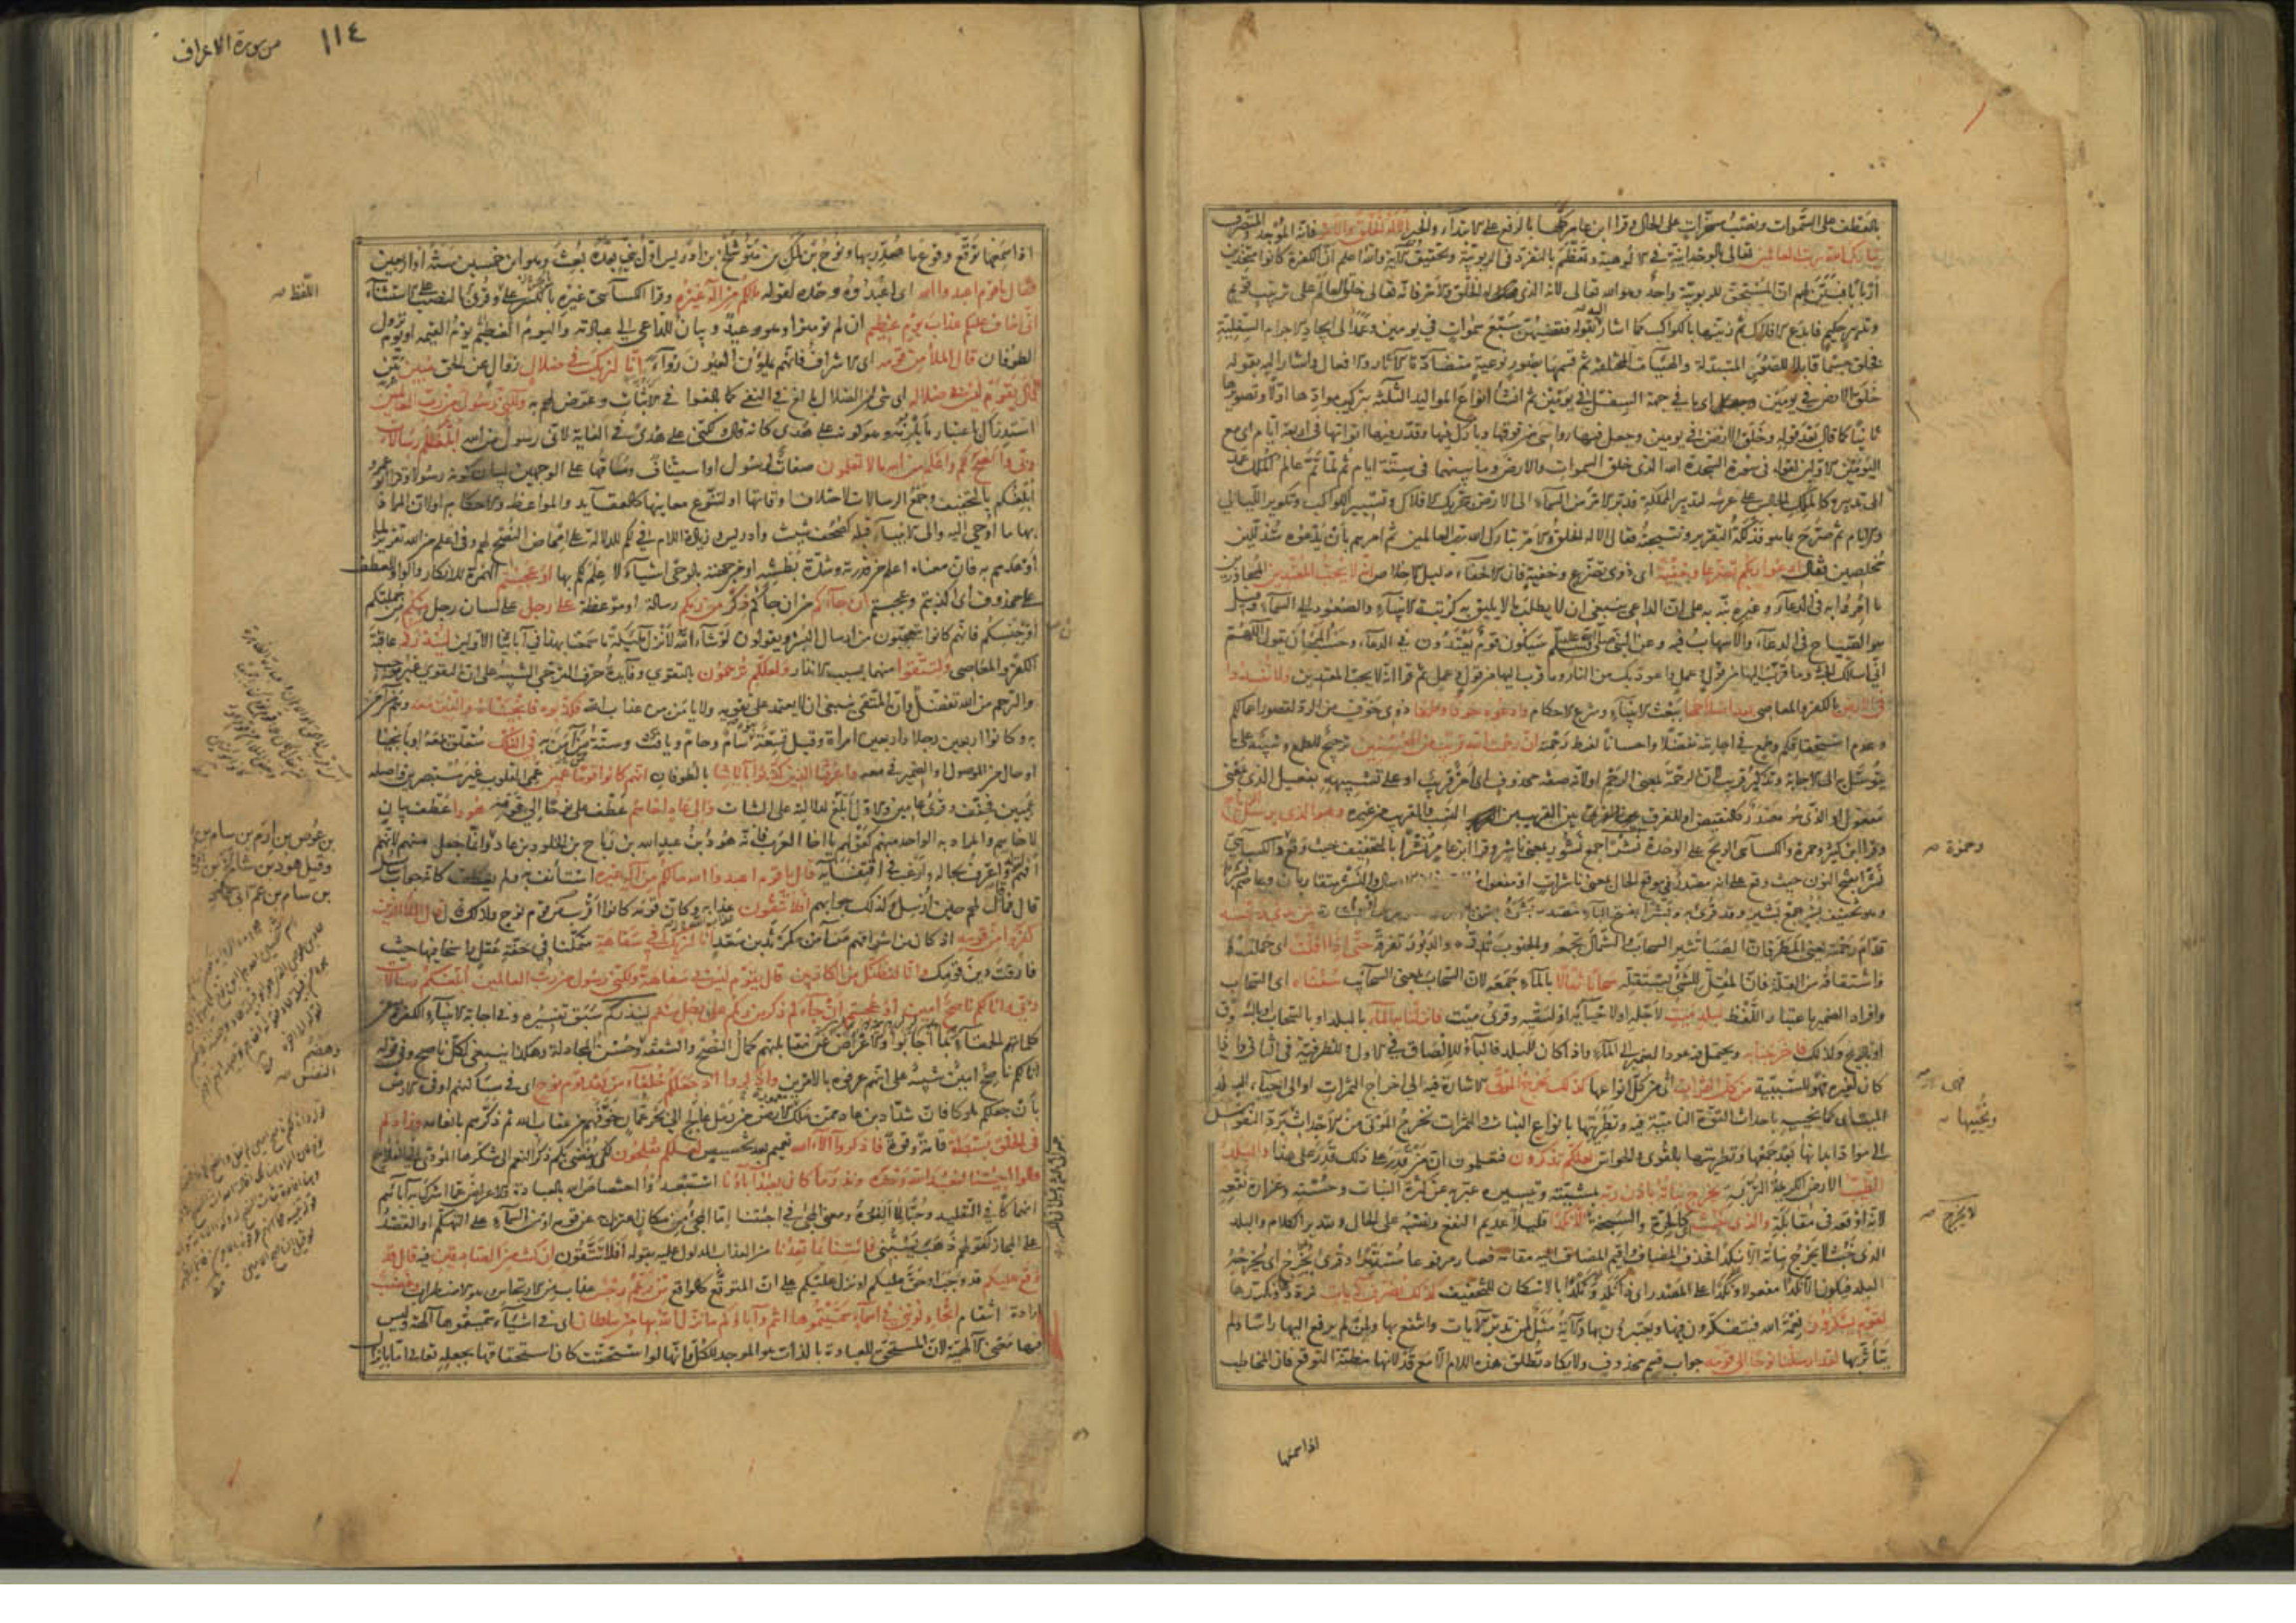 بالعطف على السموات ونصب مسخرات على الحال وقرأ ابن عامر كلها بالرفع على الابتداء والخبر الا له الخلق والامر فانه الموجد والمتصرف
تبارك الله رب العالمين تعالى بالوحدانية في الالوهية وتعظم بالتفرد في الربوبية وتحقيق الآية والله اعلم ان الكفرة كانوا متخذين
اربابا فبين لهم ان المستحق للربوبية واحد وهو الله تعالى لانه الذي له الخلق والامر فانه تعالى خلق العالم على ترتيب قويم
وتدبير حكيم فابدع الافلاك ثم زينها بالكواكب كما اشار اليه بقوله فقضيهن سبع سموات في يومين وعمد الى ايجاد الاجرام السفلية
فخلق جسما قابلا للصور المتبدلة والهيئات المختلفة ثم قسمها بصور نوعية متضادة الآثار والافعال واشار اليه بقوله
خلق الارض في يومين اي ما في جهة السفل في يومين ثم انشأ انواع المواليد الثلثة بتركيب موادها اولا وتصويرها
ثانيا كما قال بعد قوله وخلق الارض في يومين وجعل فيها رواسي من فوقها وبارك فيها وقدر فيها اقواتها في اربعة ايام اي مع
اليومين الاولين لقوله في سورة السجدة الله الذي خلق السموات والارض وما بينهما في ستة ايام ثم لما تم عالم الملك عمد
الى تدبيره كالملك الجالس على عرشه لتدبير المملكة فدبر الامر من السماء الى الارض بتحريك الافلاك وتسيير الكواكب وتكوير الليالي
والايام ثم صرح بما هو فذلكة التقرير ونتيجته فقال الا له الخلق والامر تبارك الله رب العالمين ثم امرهم بان يدعوه متذللين
مخلصين فقال ادعوا ربكم تضرعا وخفية اي ذوي تضرع وخفية فان الاخفاء دليل الاخلاص انه لا يحب المعتدين المجاوزين
ما امروا به في الدعاء وغيره نبه به على ان الداعي ينبغي ان لا يطلب ما لا يليق به كرتبة الانبياء والصعود الى السماء وقيل
هو الصياح في الدعاء والاسهاب فيه وعن النبي صلى الله عليه وسلم سيكون قوم يعتدون في الدعاء وحسب المرء ان يقول اللهم
اني اسئلك الجنة وما قرب اليها من قول وعمل واعوذ بك من النار وما قرب اليها من قول وعمل ثم قرأ انه لا يحب المعتدين ولا تفسدوا
في الارض بالكفر والمعاصي بعد اصلاحها ببعث الانبياء وشرع الاحكام وادعوه خوفا وطمعا ذوي خوف من الرد لقصور اعمالكم
وعدم استحقاقكم وطمع في اجابته تفضلا واحسانا لفرط رحمته ان رحمت الله قريب من المحسنين ترجيح للطمع وتنبيه على ما
يتوسل به الى الاجابة وتذكير قريب لان الرحمة بمعنى الرحم او لانه صفة محذوف اي امر قريب او على تشبيهه بفعيل الذي بمعنى
مفعول او الذي هو مصدر كالنقيض او للفرق بين القريب من النسب والقريب من غيره وهو الذي يرسل الرياح
وقرأ ابن كثير وحمزة والكسائي الريح على الوحدة نشرا جمع نشور بمعنى ناشر وقرأ ابن عامر نشرا بالتخفيف حيث وقع وحمزة والكسائي
نشرا بفتح النون حيث وقع على انه مصدر في موقع الحال بمعنى ناشرات او مفعول مطلق فان الارسال والنشر متقاربان وعاصم بشرا
وهو تخفيف بشر جمع بشير وقد قرئ به وبشرا بفتح الباء مصدر بشره بين يدي رحمته
قدام رحمته يعني المطر فان الصبا تثير السحاب والشمال تجمعه والجنوب تدره والدبور تفرقه حتى اذا اقلت اي حملت
واشتقاقه من القلة فان المقل للشيء يستقله سحابا ثقالا بالماء جمعه لان السحاب بمعنى السحائب سقناه اي السحاب
وافراد الضمير باعتبار اللفظ لبلد ميت لاجله او لاحيائه او لسقيه وقرئ ميت فانزلنا به الماء بالبلد او بالسحاب او بالسوق
او بالريح وكذلك فاخرجنا به ويحتمل فيه عود الضمير الى الماء واذا كان للبلد فالباء للالصاق في الاول وللظرفية في الثاني واذا
كان لغيره فهو للسببية من كل الثمرات اي من كل انواعها كذلك نخرج الموتى الاشارة فيه الى اخراج الثمرات او الى احياء البلد
الميت اي كما نحييه باحداث القوة النامية فيه وتطريتها بانواع النبات والثمرات نخرج الموتى من الاجداث برد النفوس
الى مواد ابدانها بعد جمعها وتطريتها بالقوى والحواس لعلكم تذكرون فتعلمون ان من قدر على ذلك قدر على هذا والبلد
الطيب الارض الكريمة التربة يخرج نباته باذن ربه بمشيئته وتيسيره عبر به عن كثرة النبات وحسنه وغزارة نفعه
لانه اوقعه في مقابلة والذي خبث كالحرة والسبخة لا يخرج الا نكدا قليلا عديم النفع ونصبه على الحال وتقدير الكلام والبلد
الذي خبث لا يخرج نباته الا نكدا فحذف المضاف واقيم المضاف اليه مقامه فصار مرفوعا مستترا وقرئ يخرج اي يخرجه
البلد فيكون الا نكدا مفعولا ونكدا على المصدر اي ذا نكد ونكدا بالاسكان للتخفيف كذلك نصرف الآيات نرددها ونكررها
لقوم يشكرون نعمة الله فيتفكرون فيها ويعتبرون بها والآية مثل لمن تدبر الآيات وانتفع بها ولمن لم يرفع اليها رأسا ولم
يتأثر بها لقد ارسلنا نوحا الى قومه جواب قسم محذوف ولا يكاد تطلق هذه اللام الا مع قد لانها مظنة التوقع فان المخاطب
وحمزة
ونحييها
لا يخرج
اذا سمعها
١١٤
من سورة الاعراف
اذا سمعها توقع وقوع ما صدر بها ونوح بن ملك بن متوشلخ بن ادريس اول نبي بعده بعث وهو ابن خمسين سنة او اربعين
فقال يا قوم اعبدوا الله اي اعبدوه وحده لقوله ما لكم من اله غيره وقرأ الكسائي غيره بالكسر على اللفظ وقرئ بالنصب على الاستثناء
اني اخاف عليكم عذاب يوم عظيم ان لم تؤمنوا وهو وعيد وبيان للداعي الى عبادته واليوم العظيم يوم القيمة او يوم نزول
الطوفان قال الملأ من قومه اي الاشراف فانهم يملؤن العيون رواء انا لنريك في ضلال زوال عن الحق مبين بين
قال يا قوم ليس بي ضلالة اي شيء من الضلال بالغ في النفي كما بالغوا في الاثبات وعرض لهم به ولكني رسول من رب العالمين
استدراك باعتبار ما يلزمه وهو كونه على هدى كانه قال ولكني على هدى في الغاية لاني رسول من الله ابلغكم رسالات
ربي وانصح لكم واعلم من الله ما لا تعلمون صفات لرسول او استيناف ومساقها على الوجهين لبيان كونه رسولا وقرأ ابو عمرو
ابلغكم بالتخفيف وجمع الرسالات لاختلاف اوقاتها او لتنوع معانيها كالعقائد والمواعظ والاحكام او لان المراد
بها ما اوحي اليه والى الانبياء قبله كصحف شيث وادريس وزيادة اللام في لكم للدلالة على امحاض النصح لهم وفي اعلم من الله تقرير لما
اوعدهم به فان معناه اعلم من قدرته وشدة بطشه او من جهته بالوحي اشياء لا علم لكم بها اوعجبتم الهمزة للانكار والواو للعطف
على محذوف اي اكذبتم وعجبتم ان جاءكم من ان جاءكم ذكر من ربكم رسالة او موعظة على رجل على لسان رجل منكم من جملتكم
او من جنسكم فانهم كانوا يتعجبون من ارسال البشر ويقولون لو شاء الله لانزل ملئكة ما سمعنا بهذا في آبائنا الاولين لينذركم عاقبة
الكفر والمعاصي ولتتقوا منهما بسبب الانذار ولعلكم ترحمون بالتقوى وفائدة حرف الترجي التنبيه على ان التقوى غير موجب
والترحم من الله تفضل وان المتقي ينبغي ان لا يعتمد على تقويه ولا يأمن من عذاب الله فكذبوه فانجيناه والذين معه وهم من آمن
به وكانوا اربعين رجلا واربعين امرأة وقيل تسعة بنوه سام وحام ويافث وستة ممن آمن به في الفلك متعلق بمعه او بانجينا
او حال من الموصول او الضمير في معه واغرقنا الذين كذبوا بآياتنا بالطوفان انهم كانوا قوما عمين عمي القلوب غير مستبصرين واصله
عميين فخفف وقرئ عامين والاول ابلغ لدلالته على الثبات والى عاد اخاهم عطف على نوحا الى قومه هودا عطف بيان
لاخاهم والمراد به الواحد منهم كقولهم يا اخا العرب فانه هود بن عبد الله بن رباح بن الخلود بن عاد وانما جعل منهم لانهم
افهم لقوله واعرف بحاله وارغب في اقتفائه قال يا قوم اعبدوا الله ما لكم من اله غيره استأنف به ولم يعطف كانه جواب سائل
قال فما قال لهم حين ارسل وكذلك جوابهم افلا تتقون عذاب الله وكان قومه كانوا اقرب من قوم نوح ولذلك قال الملأ الذين
كفروا من قومه اذ كان من اشرافهم من آمن به كمرثد بن سعد انا لنريك في سفاهة متمكنا في خفة عقل راسخا فيها حيث
فارقت دين قومك وانا لنظنك من الكاذبين قال يا قوم ليس بي سفاهة ولكني رسول من رب العالمين ابلغكم رسالات
ربي وانا لكم ناصح امين اوعجبتم ان جاءكم ذكر من ربكم على رجل منكم لينذركم سبق تفسيره وفي اجابة الانبياء الكفرة عن
كلماتهم الحمقاء بما اجابوا والاعراض عن مقابلتهم كمال النصح والشفقة وحسن المجادلة وهكذا ينبغي لكل ناصح وفي قوله
وانا لكم ناصح امين تنبيه على انهم عرفوه بالامرين واذكروا اذ جعلكم خلفاء من بعد قوم نوح اي في مساكنهم او في الارض
بان جعلكم ملوكا فان شداد بن عاد ممن ملك الارض من رمل عالج الى بحر عمان خوفهم من عقاب الله ثم ذكرهم بانعامه وزادكم
في الخلق بسطة قامة وقوة فاذكروا آلاء الله تعميم بعد تخصيص لعلكم تفلحون لكي يفضي بكم ذكر النعم الى شكرها المؤدي الى الفلاح
قالوا اجئتنا لنعبد الله وحده ونذر ما كان يعبد آباؤنا استبعدوا اختصاص الله بالعبادة والاعراض عما اشرك به آباؤهم
انهماكا في التقليد وحبا لما الفوه ومعنى المجيء في اجئتنا اما المجيء من مكان اعتزل به عن قومه او من السماء على التهكم او القصد
على المجاز كقولهم ذهب يسبني فائتنا بما تعدنا من العذاب المدلول عليه بقوله افلا تتقون ان كنت من الصادقين فيه قال قد
وقع عليكم قد وجب او حق عليكم او نزل عليكم على ان المتوقع كالواقع من ربكم رجس عذاب من الارتجاس وهو الاضطراب وغضب
ارادة انتقام اتجادلونني في اسماء سميتموها انتم وآباؤكم ما نزل الله بها من سلطان اي في اشياء سميتموها آلهة وليس
فيها معنى الالهية لان المستحق للعبادة بالذات هو الموجد للكل وانها لو استحقت كان استحقاقها بجعله تعالى اما بانزال
اللفظ
بن عوص بن ارم بن سام بن
وقيل هود بن شالخ بن
بن سام بن عم ابي عاد